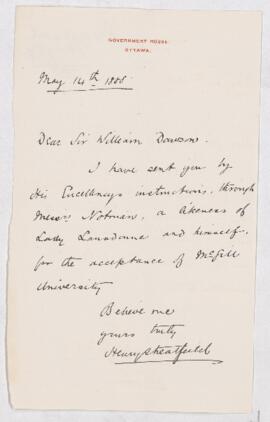 GOVERNMENT HOUSE.
OTTAWA.
May 14th 1888
Dear Sir William Dawson.
I have sent you by
His Excellency's instructions, through
Messrs Notman, a likeness of
Lady Lansdowne and himself,
for the acceptance of McGill
University
Believe me
yours truly
Henry Streatfeild